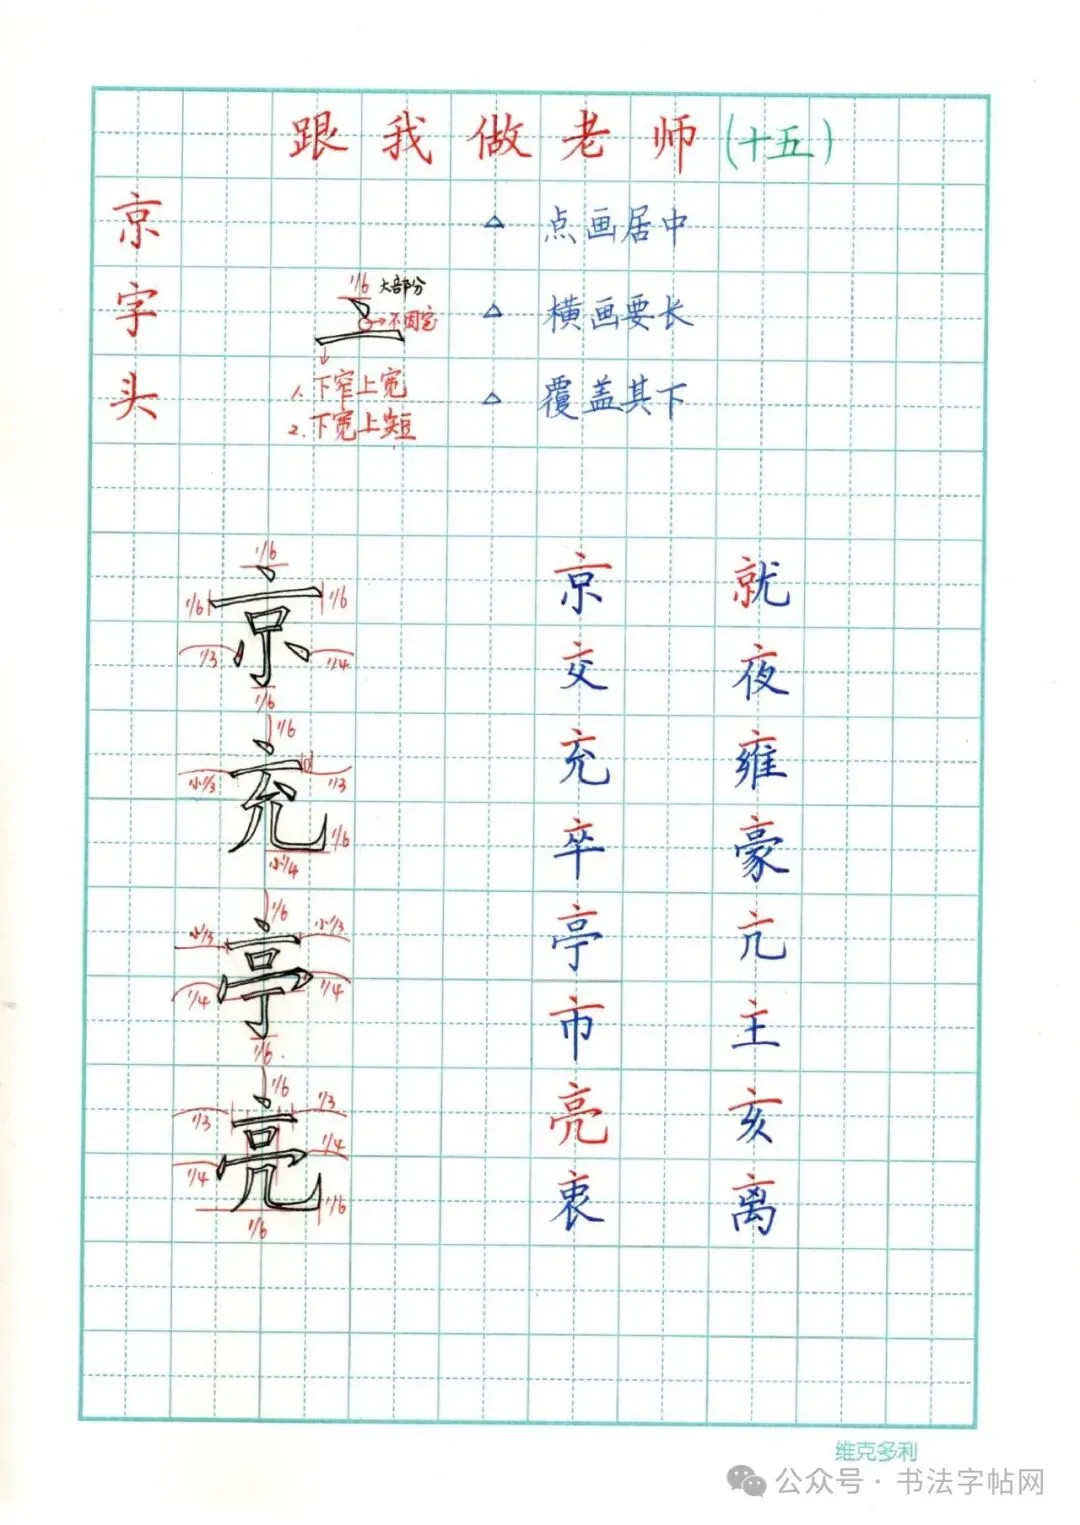 跟我做老师(十五)
京字头
△ 点画居中
△ 横画要长
△ 覆盖其下
1/6 大部分
不固定
1. 下窄上宽
2. 下宽上短
1/6
京
1/6 1/6
1/3 1/4
1/6
1/6
充
小1/3 1/3
1/6
小1/4
1/6
亭
小1/3 小1/3
1/4 1/4
1/6
1/6
亮
1/3 1/3
1/4 1/4
1/6
1/6
京 就
交 夜
充 雍
卒 豪
亭 亢
市 主
亮 亥
衷 离
维克多利
公众号·书法字帖网